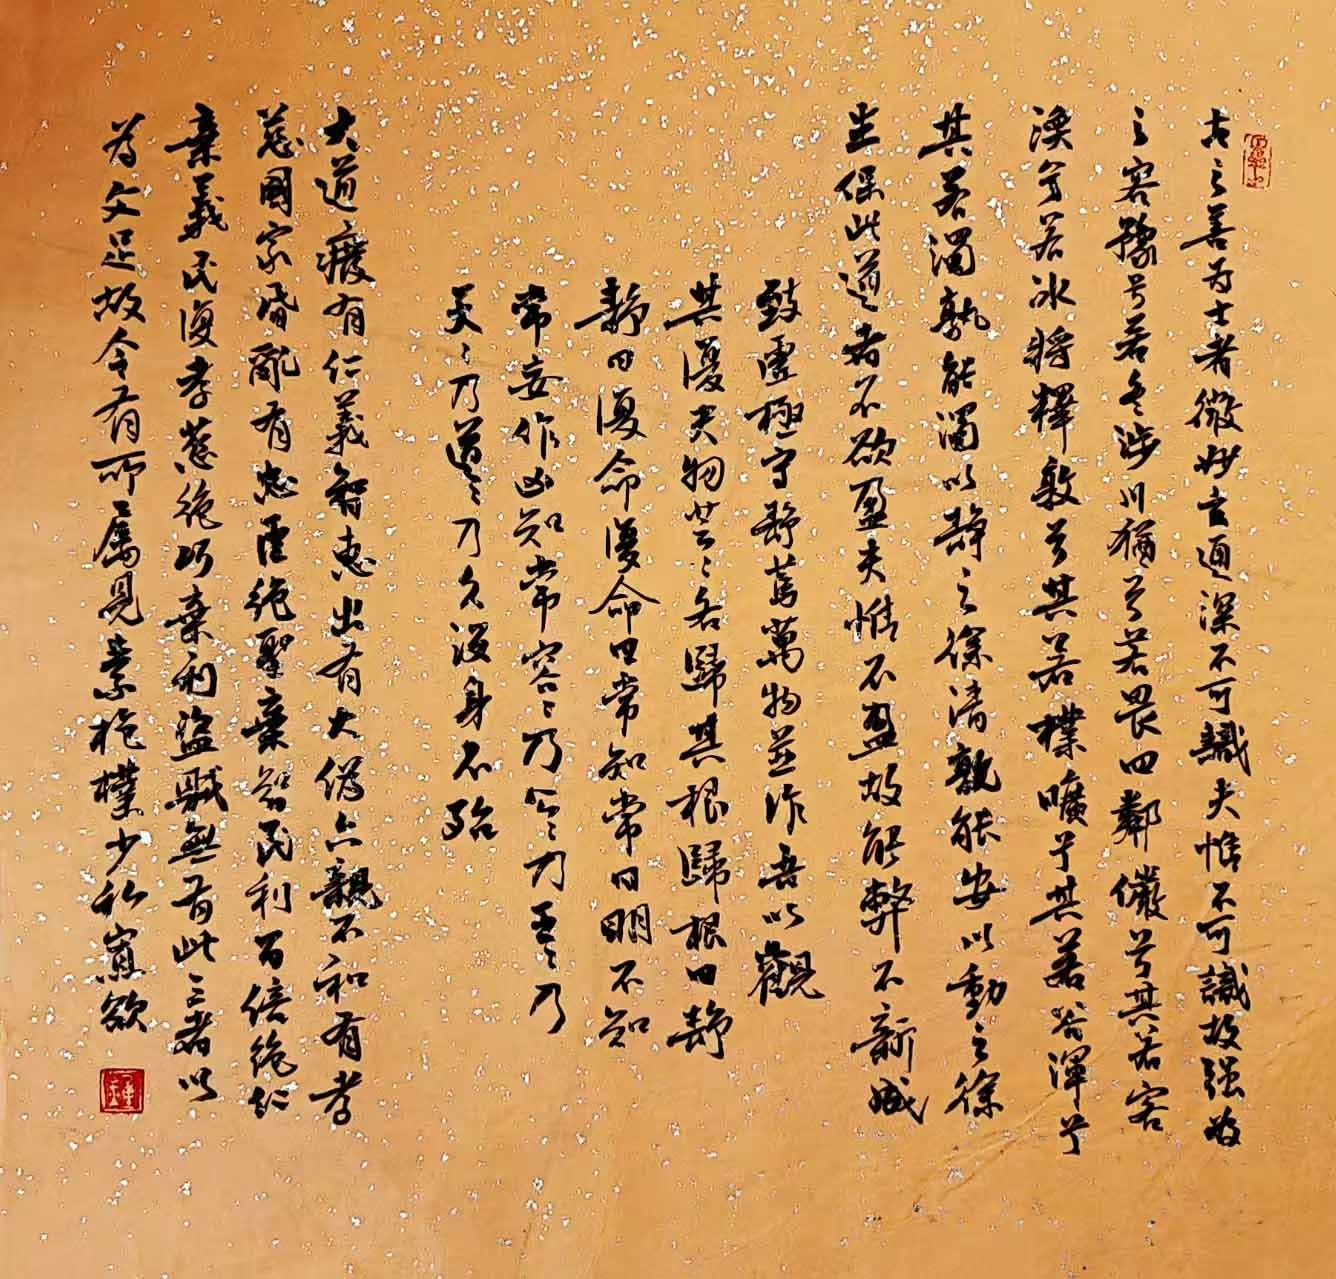 古之善为士者微妙玄通深不可識夫惟不可識故强为
之容豫兮若冬涉川猶兮若畏四鄰儼兮其若客
渙兮若冰將釋敦兮其若樸曠兮其若谷渾兮
其若濁孰能濁以靜之徐清孰能安以動之徐
生保此道者不欲盈夫惟不盈故能弊不新成
致虛極守靜篤萬物並作吾以觀
其復夫物芸〻各歸其根歸根曰靜
靜曰復命復命曰常知常曰明不知
常妄作凶知常容〻乃公〻乃王〻乃
天〻乃道〻乃久沒身不殆
大道廢有仁義智惠出有大偽六親不和有孝
慈國家昏亂有忠臣絕聖棄智民利百倍絕仁
棄義民復孝慈絕巧棄利盜賊無有此三者以
為文足故令有所屬見素抱樸少私寡欲